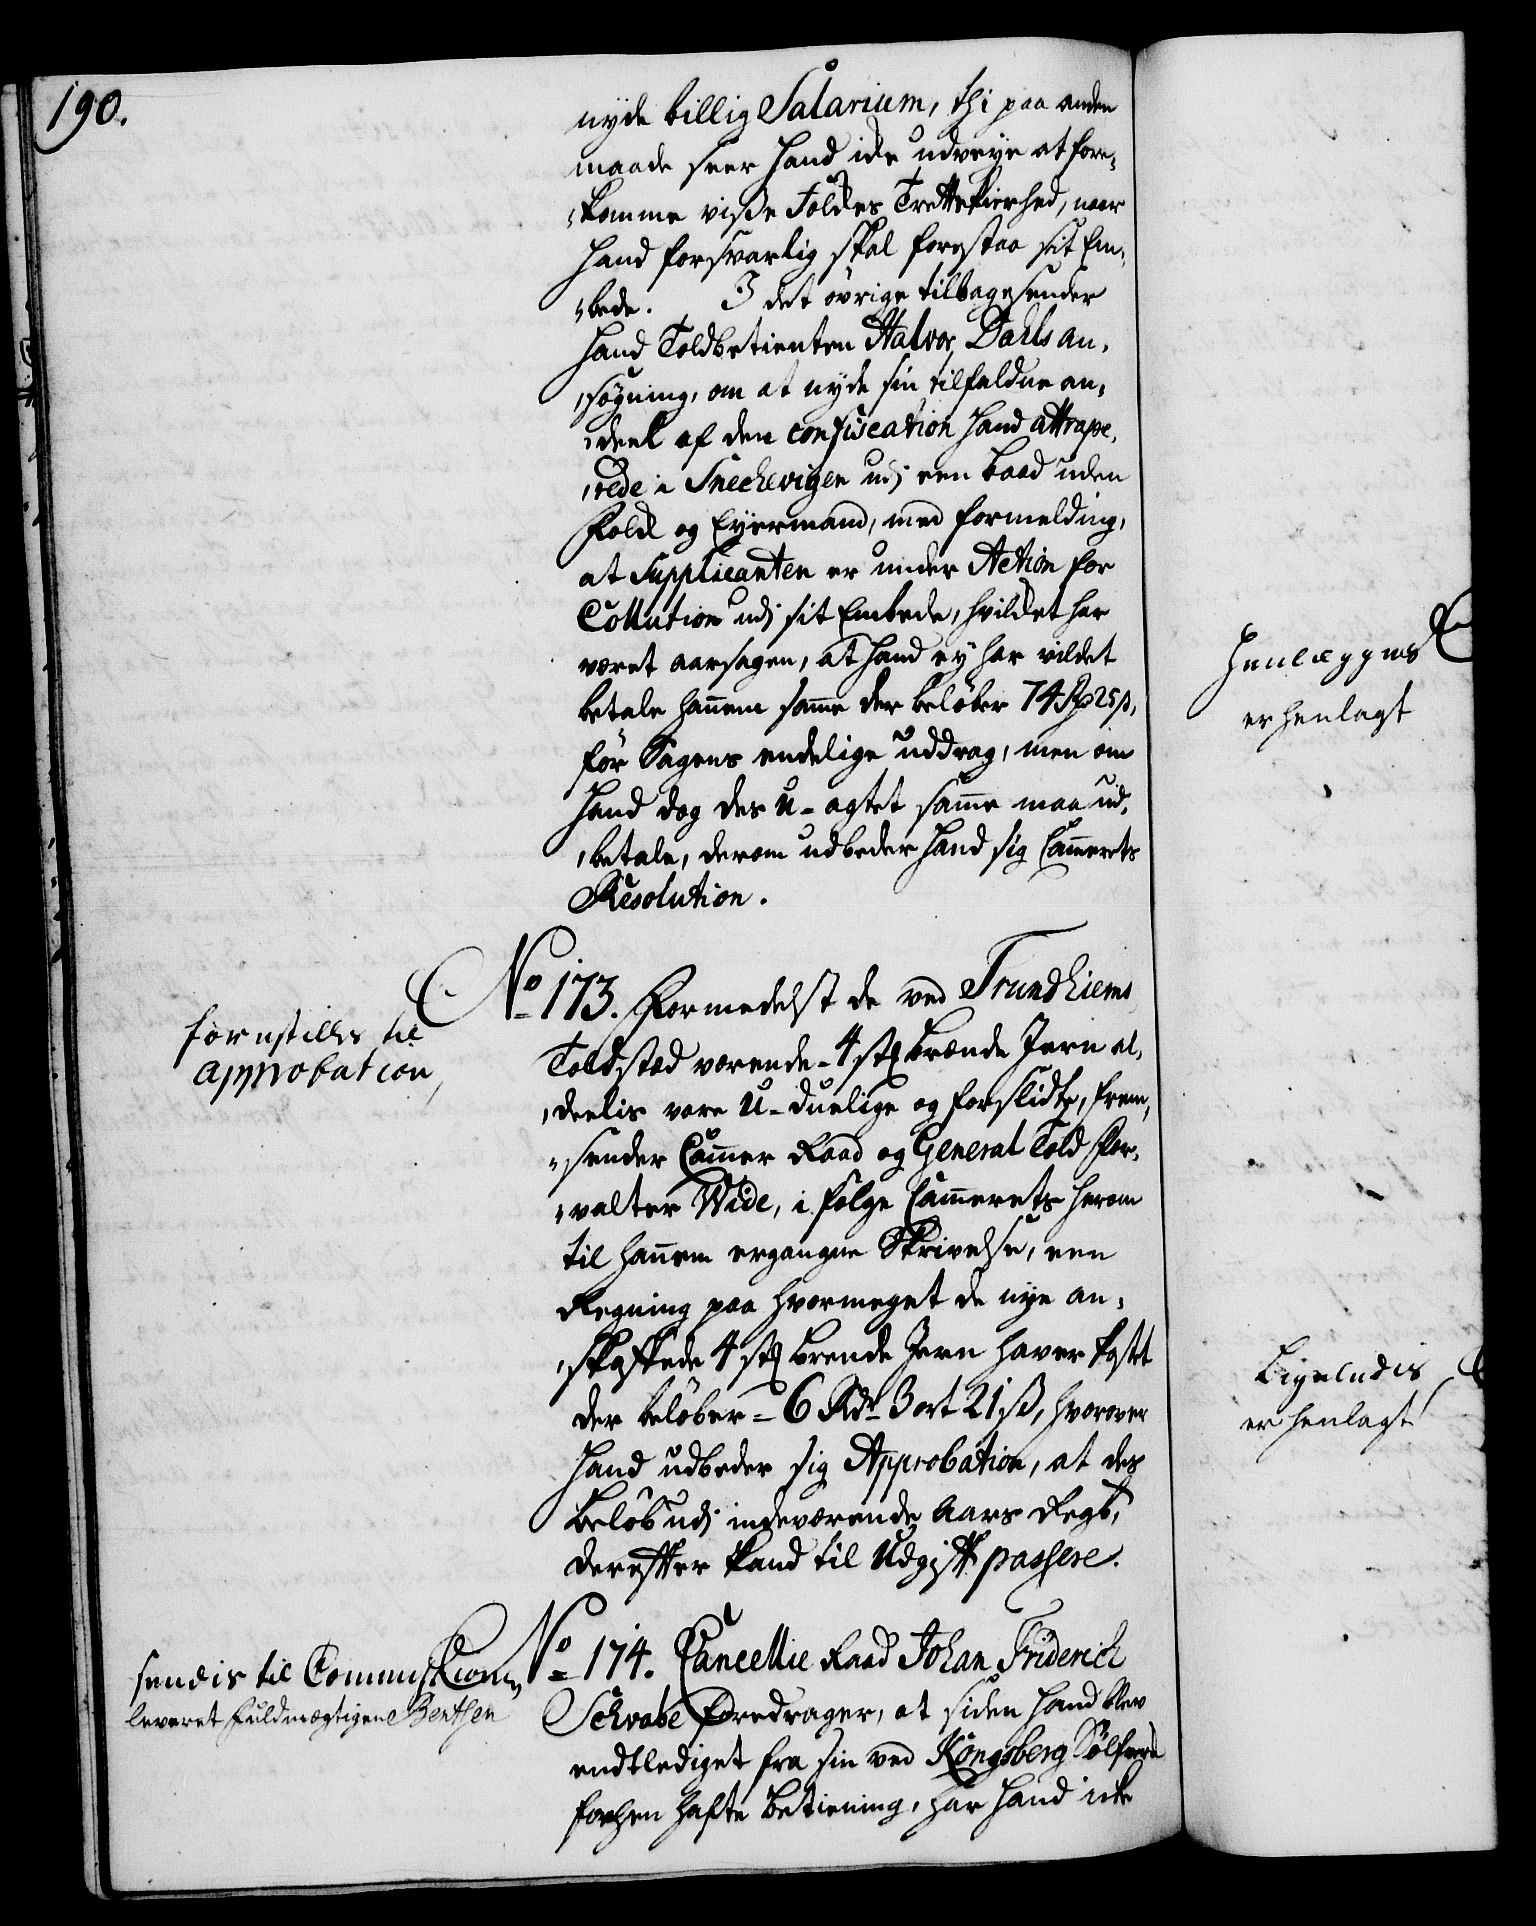 190.
nyde billig Salarium, thi paa anden
maade seer hand icke udveye at fore¬
„komme visse Folkes Trettekierhed, naar
hand forsvarlig skal forestaa sit Em¬
„bede. I det øvrige tilbagesender
hand Toldbetienten Halvor Dahls an¬
„søgning, om at nyde sin tilfaldne an¬
„deel af den confiscation hand attrape¬
„rede i Snechevigen udj een baad uden
Folk og Eyermand, med formelding,
at Supplicanten er under Action for
Collution udj sit Embede, hvilket har
været aarsagen, at hand ey har vildet
betale hannem samme der beløber 74 Rdr 25 s,
før Sagens endelige uddrag, men om
hand dog des u-agtet samme maa ud¬
„betale, derom udbeder hand sig Cammerets
Resolution.
fornstilles til
approbation,
No 173. Formedelst de ved Trundhiems
Toldsted værende 4 stk brænde Jern al¬
„deelis vare u-duelige og forslidte, frem¬
„sender Cammer Raad og General Told For¬
„valter Wide, i følge Cammerets herom
til hannem ergangne Skrivelse, een
Regning paa hvormeget de nye an¬
„skaffede 4 stk brende Jern haver kostet
der beløber = 6 Rdr 3 ort 21 s, hvorover
hand udbeder sig Approbation, at des
beløb udj indeværende Aars Regb.
derefter kand til Udgift passere.
sendis til Commission,
leveret fuldmægtigene Benthen
No 174. Cancellie Raad Johan Friderich
Schwabe foredrager, at siden hand blev
endtlediget fra sin ved Kongsberg Sølfverk
forhen hafte betiening, har hand icke
henlægges
er henlagt
Ligeledis
er henlagt